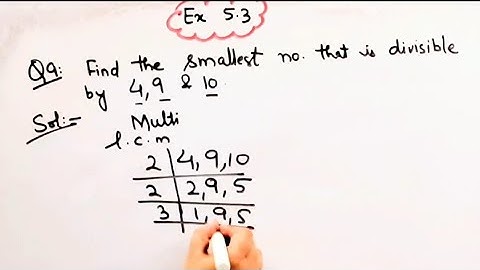 Ex 5.3
Q9: Find the smallest no. that is divisible
by 4, 9 & 10.
Sol:- Multi
l.c.m
2 | 4, 9, 10
2 | 2, 9, 5
3 | 1, 9, 5